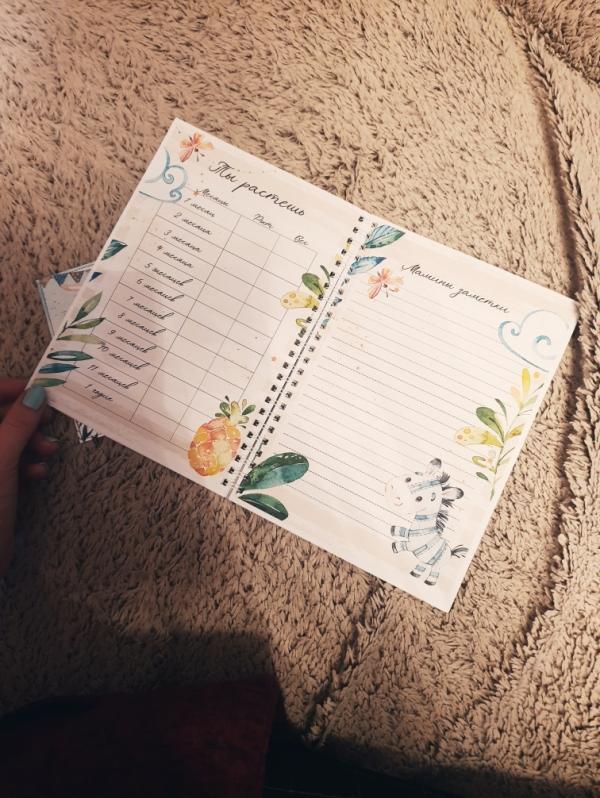 Ты растешь
Месяцы Рост Вес
1 месяц
2 месяца
3 месяца
4 месяца
5 месяцев
6 месяцев
7 месяцев
8 месяцев
9 месяцев
10 месяцев
11 месяцев
1 годик
Мамины заметки